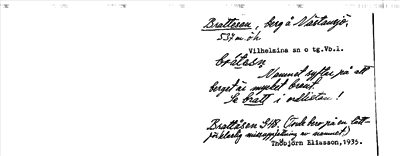 Brattåsen, berg å Nästansjö,
537 m ö h
Vilhelmina sn o tg.Vb.l.
bråtasn
Namnet syftar på att
berget är mycket brant.
Se bratt i ordlistan!
Brattåsen GHB. (Torde bero på en lätt-
förklarlig missuppfattning av namnet)
Thobjörn Eliasson, 1935.